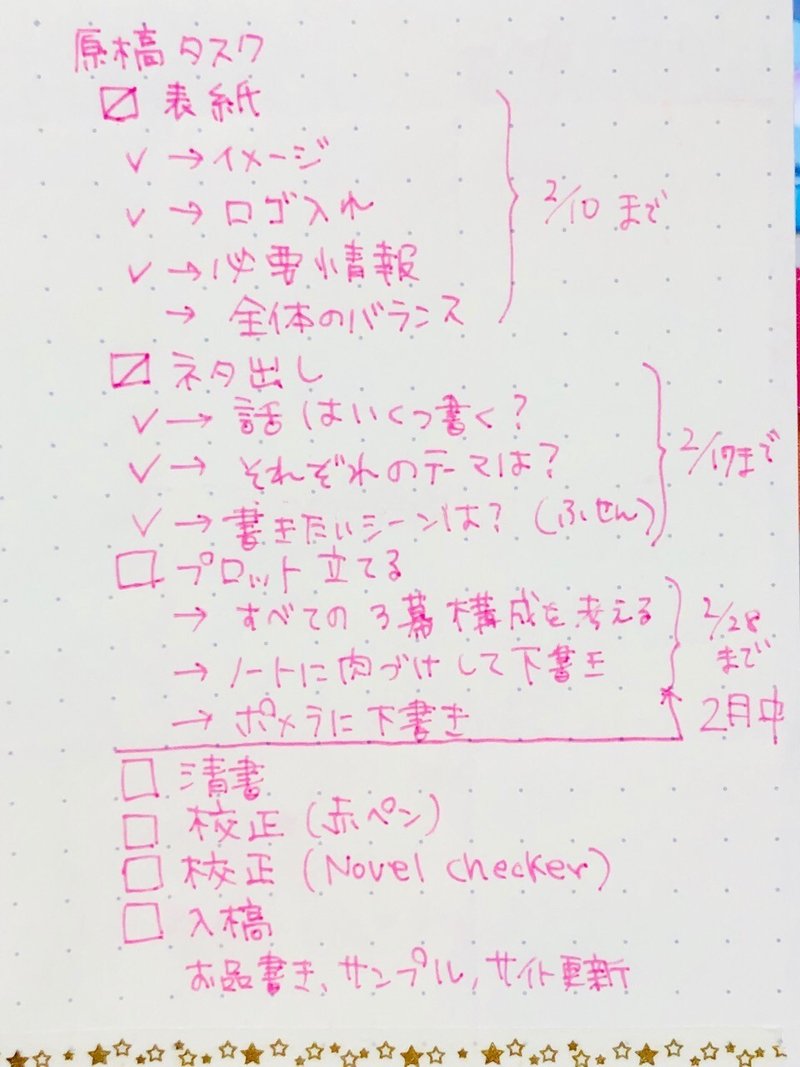 原稿タスク
☑ 表紙
✓ → イメージ
✓ → ロゴ入れ
✓ → 必要情報
→ 全体のバランス
2/10 まで
☑ ネタ出し
✓ → 話はいくつ書く?
✓ → それぞれのテーマは?
✓ → 書きたいシーンは? (ふせん)
2/17まで
□ プロット立てる
→ すべての3幕構成を考える
→ ノートに肉づけして下書き
→ ポメラに下書き
2/28
まで
2月中
□ 清書
□ 校正 (赤ペン)
□ 校正 (Novel checker)
□ 入稿
お品書き、サンプル、サイト更新